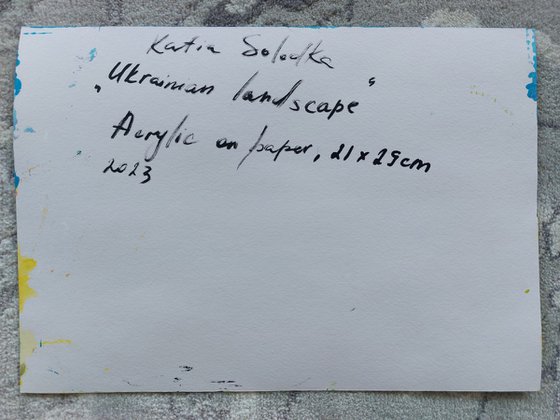 Katia Solodka
„Ukrainian landscape“
Acrylic on paper, 21x29cm
2023